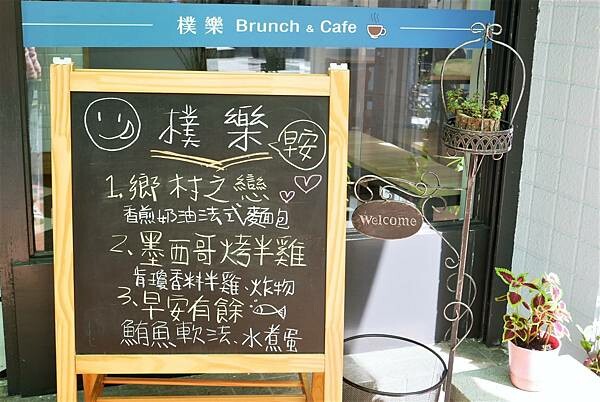 樸樂 Brunch & Cafe
樸樂
早安
1.鄉村之戀
香煎奶油法式麵包
2.墨西哥烤半雞
肯瓊香料半雞、炸物
3.早安有餘
鮪魚軟法、水煮蛋
Welcome